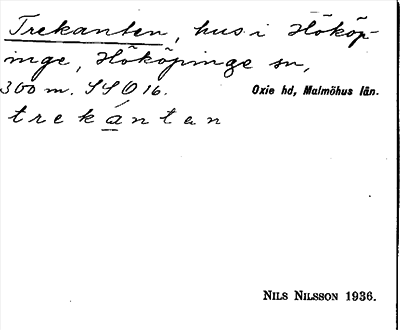 Trekanten, hus i Hököp-
inge, Hököpinge sn,
300 m. SSO 16. Oxie hd, Malmöhus län.
trekánten
NILS NILSSON 1936.